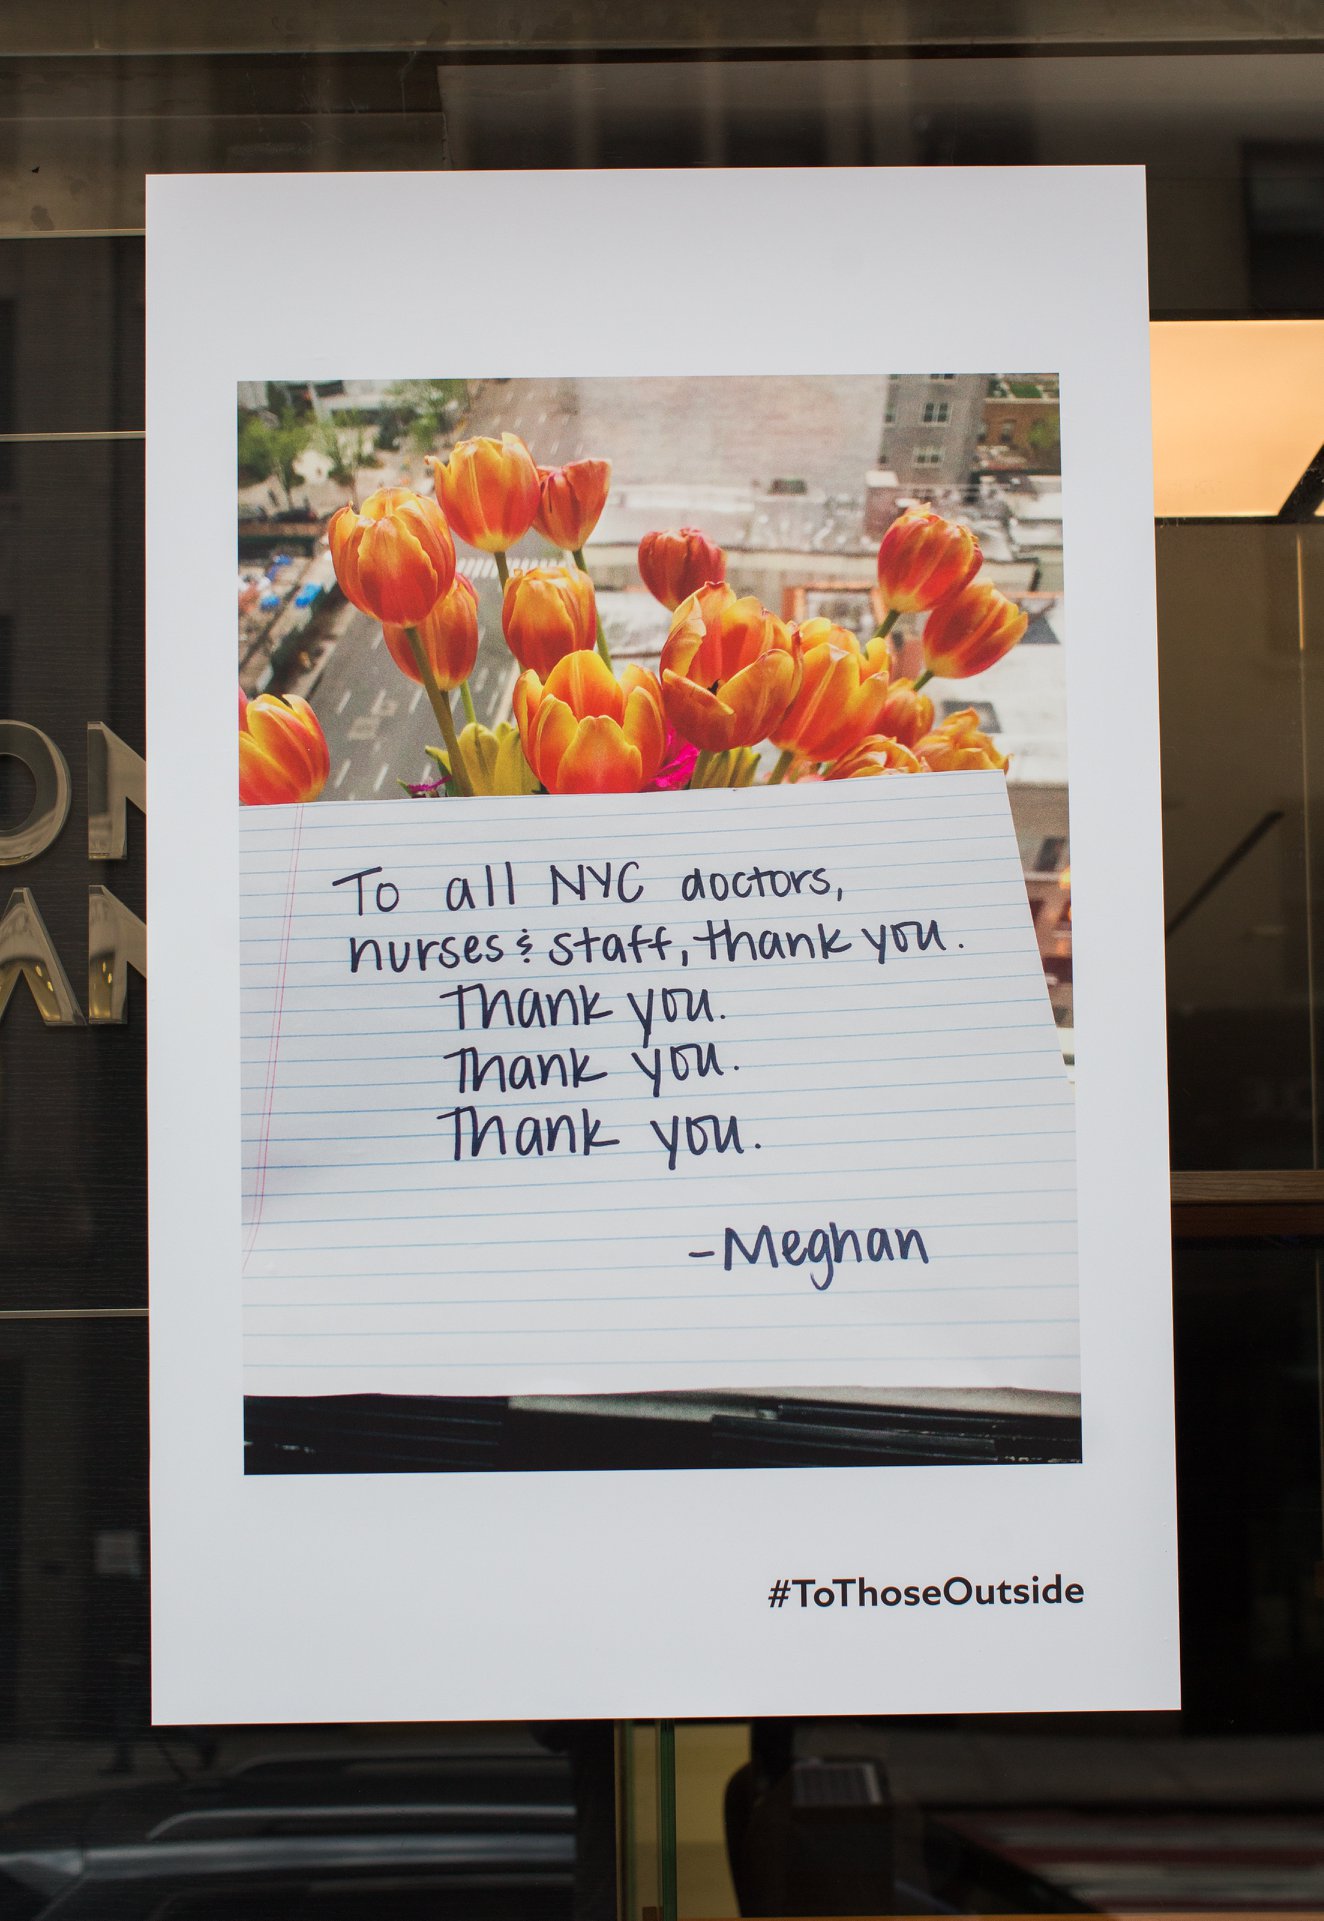 To all NYC doctors,
nurses & staff, thank you.
Thank you.
Thank you.
Thank you.
-Meghan
#ToThoseOutside
ON
AN